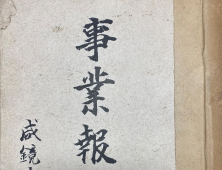 事業報
咸鏡